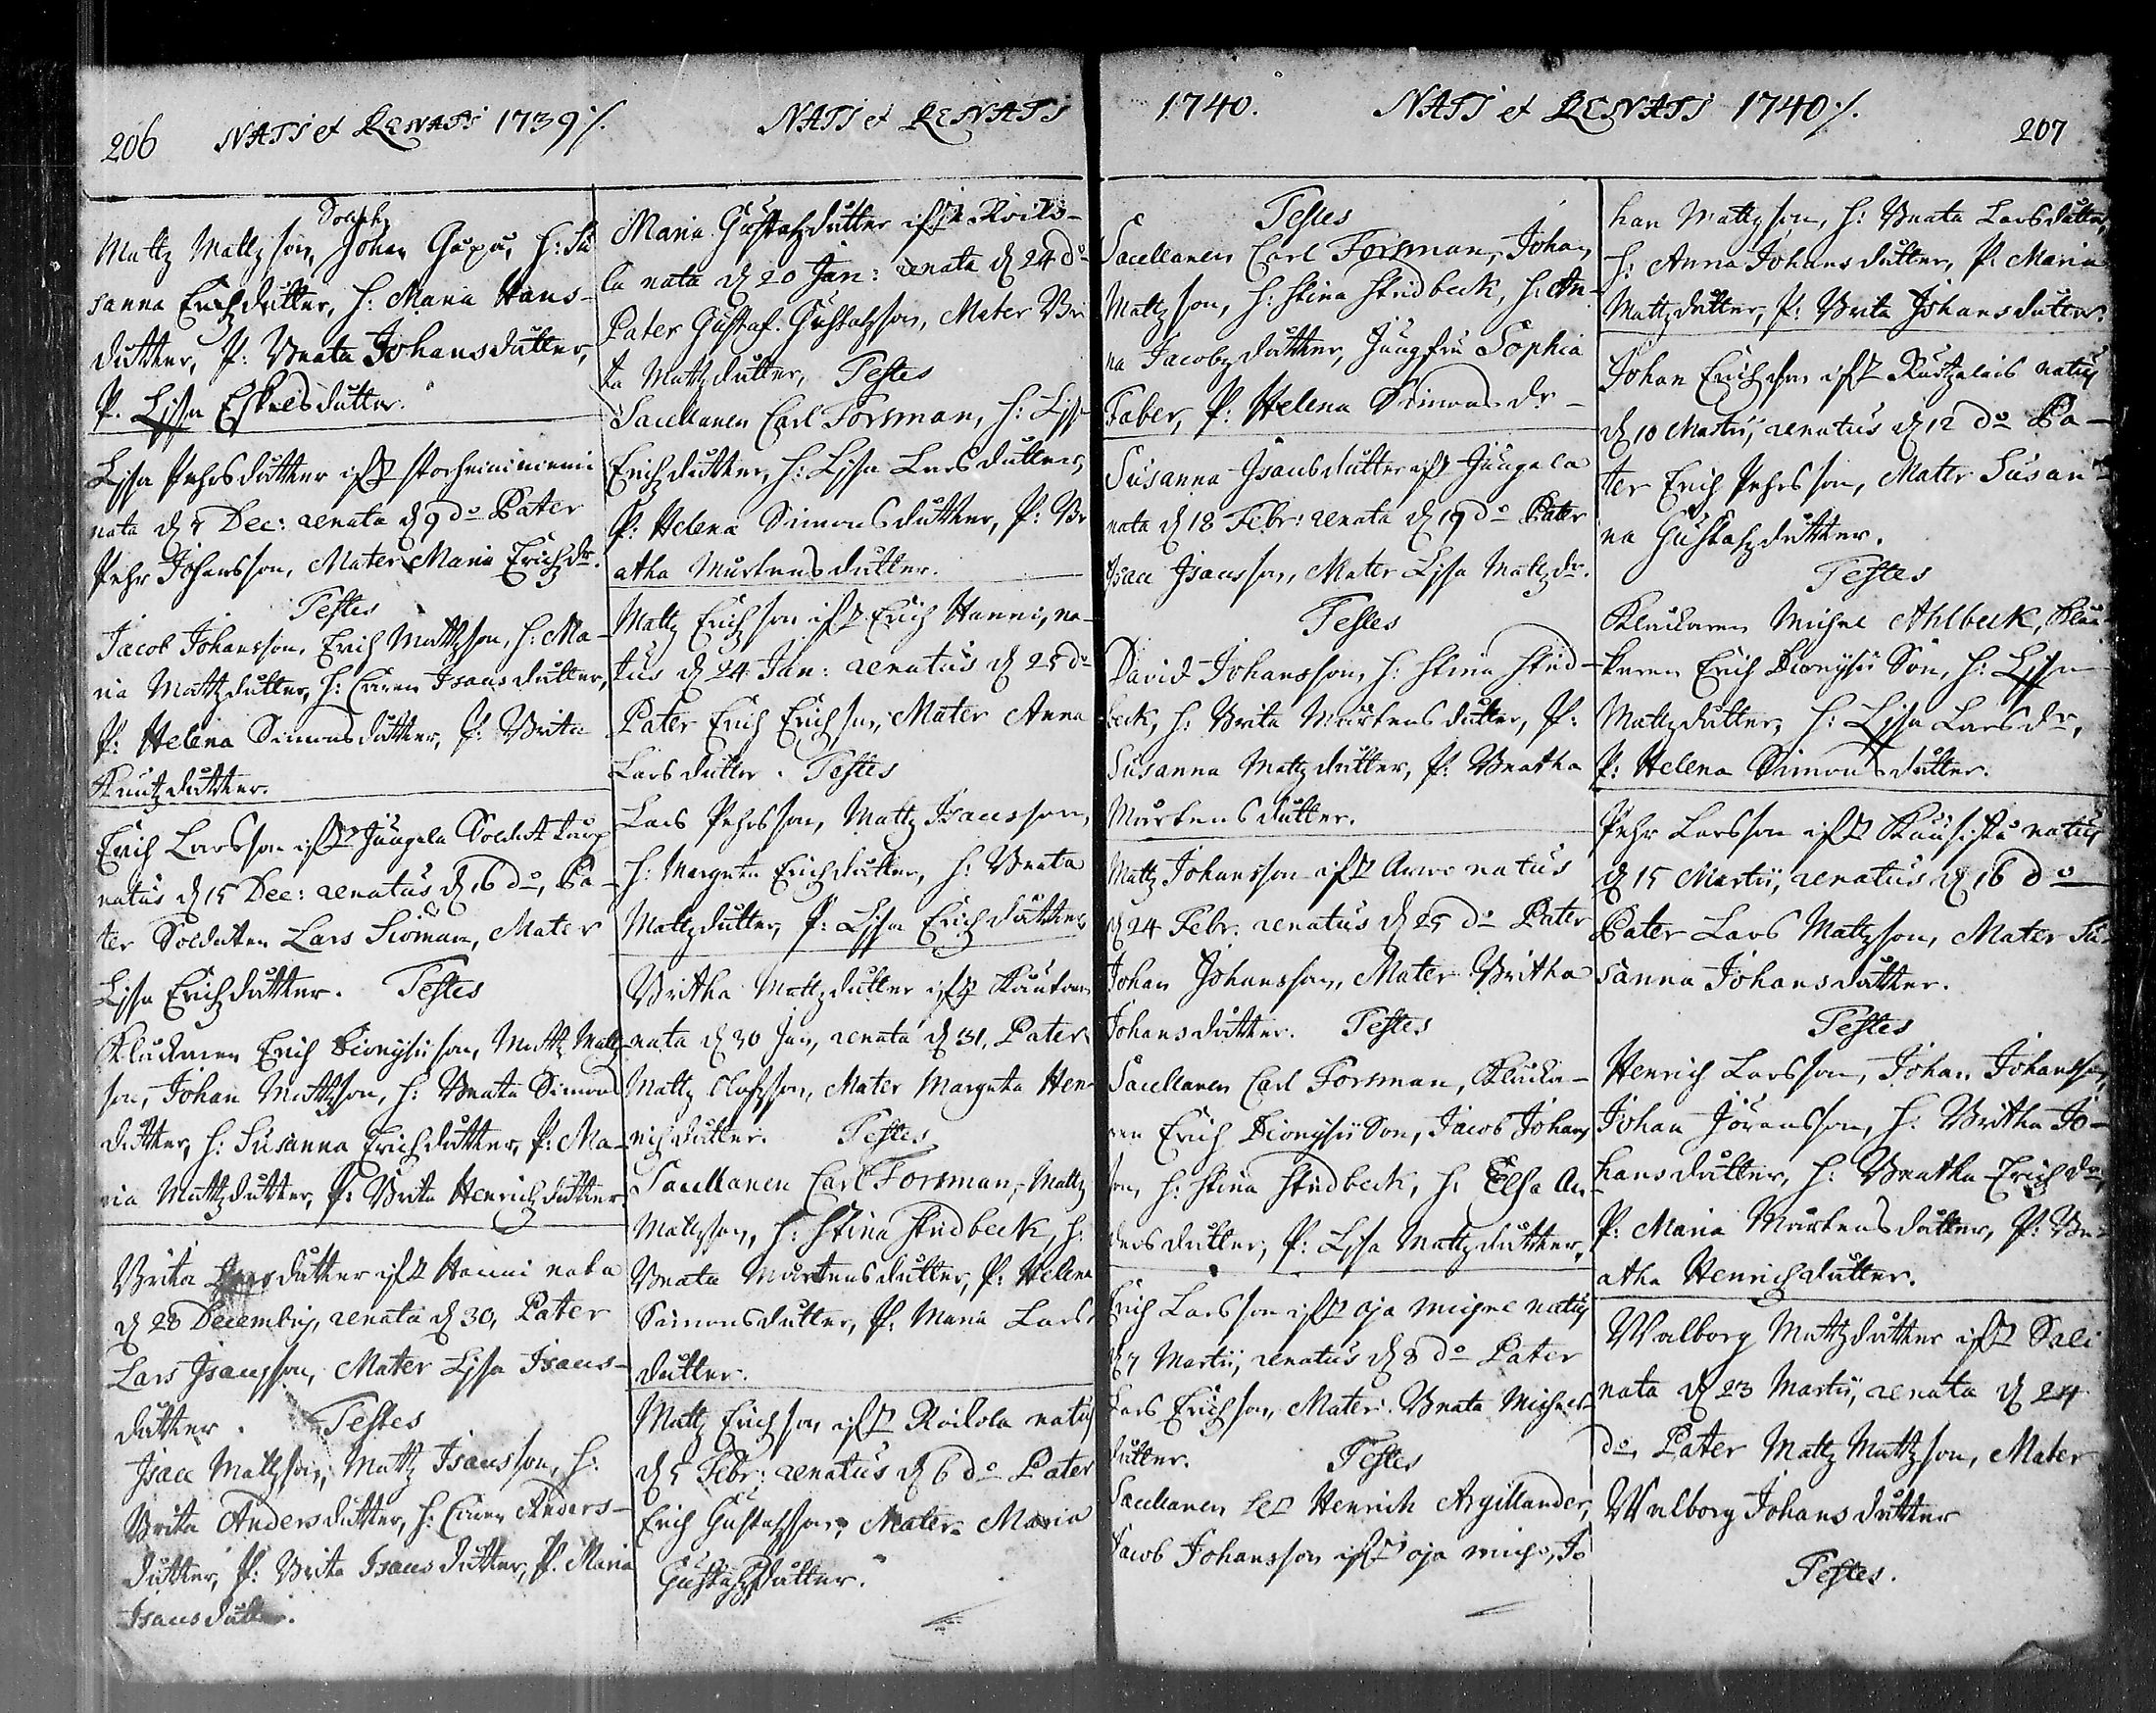 206 NATI et RENATI 1739 ./.
Matz Matzson, Johan
sanna Erichzdutter, H: Maria Hans-
dutter, P: Beata Johansdutter,
P. Lisa Eskilsdutter.
Lisa Pehrsdutter ifr
nata d 7 Dec: renata d 9 do Pater
Pehr Johansson, Mater Maria Erichzdr.
Testes
Jacob Johansson, Erich Mattzson, H: Ma-
ria Mattzdutter, H: Caren Isacsdutter,
P: Helena Simonsdutter, P: Brita
Knutzdutter.
Erich Larsson ifr Jungela Soldat torp
natus d 15 Dec: renatus d 16 do, Pa-
ter Soldaten Lars Sioman, Mater
Lisa Erichzdutter. Testes
Kluckaren Erich Dionysii son, Mattz Mattz
son, Johan Mattzson, H: Beata Simons
dutter, H: Susanna Erichzdutter, P: Ma-
ria Mattzdutter, P: Brita Henrichzdutter
Brita Larsdutter ifr Hanni nata
d 28 Decembris, renata d 30, Pater
Lars Isacsson, Mater Lisa Isacs-
dutter. Testes
Isac Mattzson, Mattz Isacsson, H:
Brita Andersdutter, H: Caren Anders-
dutter, P: Brita Isacsdutter, P. Maria
Isacsdutter.
NATI et RENATI
Maria Gustafzdutter ifr Roiko-
la nata d 20 Jan: renata d 24 do
Pater Gustaf Gustafzson, Mater Bri
ta Mattzdutter, Testes
Sacellanen Carl Forsman, H: Lisa
Erichzdutter, H: Lisa Larsdutter,
P: Helena Simonsdutter, P: Be
atha Mårtensdutter.
Mattz Erichson ifr Erich Hanni, na-
tus d 24 Jan: renatus d 25 do
Pater Erich Erichson, Mater Anna
Larsdutter. Testes
Lars Pehrsson, Mattz Isacsson,
H: Margeta Erichdutter, H: Beata
Mattzdutter, P: Lisa Erichdutter
Britha Mattzdutter ifr
nata d 30 Jan, renata d 31. Pater
Mattz Olofzson, Mater Margeta Hen-
richdutter. Testes
Sacellanen Carl Forsman, Mattz
Mattzson, H: Stina Stedbeck, H:
Beata Mårtensdutter, P: Helena
Simonsdutter, P. Maria Lars
dutter.
Mattz Erichson ifr Roikola natus
d 5 Febr: renatus d 6 do Pater
Erich Gustafzson, Mater Maria
Gustafzdutter.
1740. NATI et RENATI 1740 ./.
207
Testes
Sacellanen Carl Forsman, Johan
Mattzson, H: Stina Stedbeck, H: An-
na Jacobzdutter, Jungfru Sophia
Faber, P: Helena Simonsdr
Susanna Isacsdutter ifr Jungela
nata d 18 Febr: renata d 19 do Pater
Isac Isacsson, Mater Lisa Mattzdr.
Testes
David Johansson, H: Stina Sted-
beck, H: Brita Mårtensdutter, P:
Susanna Mattzdutter, P: Beatha
Mårtensdutter.
Mattz Johansson ifr natus
d 24 Febr. renatus d 25 do Pater
Johan Johansson, Mater Britha
Johansdutter. Testes
Sacellanen Carl Forsman, Klucka-
ren Erich Dionysii Son, Jacob Johans
son, H: Stina Stedbeck, H: Elsa An-
dersdutter, P: Lisa Mattzdutter,
Erich Larsson ifr oja Michel natus
d 7 Martii, renatus d 8 do Pater
Lars Erichson, Mater Beata Michels-
dutter. Testes
Sacellanen Henrich Argillander,
Jacob Johansson ifr oja Mich:, Jo
han Mattzson, H: Beata Larsdutter,
H: Anna Johansdutter, P. Maria
Mattzdutter, P: Brita Johansdutter.
Johan Erichson ifr natus
d 10 Martii, renatus d 12 do Pa-
ter Erich Pehrsson, Mater Susan-
na Gustafzdutter.
Testes
Kluckaren Michel Ahlbeck, Kluc-
karen Erich Dionysii Son, H: Lisa
Mattzdutter, H: Lisa Larsdr,
P: Helena Simonsdutter.
Pehr Larsson ifr natus
d 15 Martii, renatus d 16 do
Pater Lars Mattzson, Mater Su-
sanna Johansdutter.
Testes
Henrich Larsson, Johan Johansson,
Johan Jöransson, H: Britha Jo-
hansdutter, H: Beatha Erichdr,
P: Maria Mårtensdutter, P: Be-
atha Henrichdutter.
Walborg Mattzdutter ifr Sali
nata d 23 Martii, renata d 24
do, Pater Mattz Mattzson, Mater
Walborg Johansdutter
Testes.